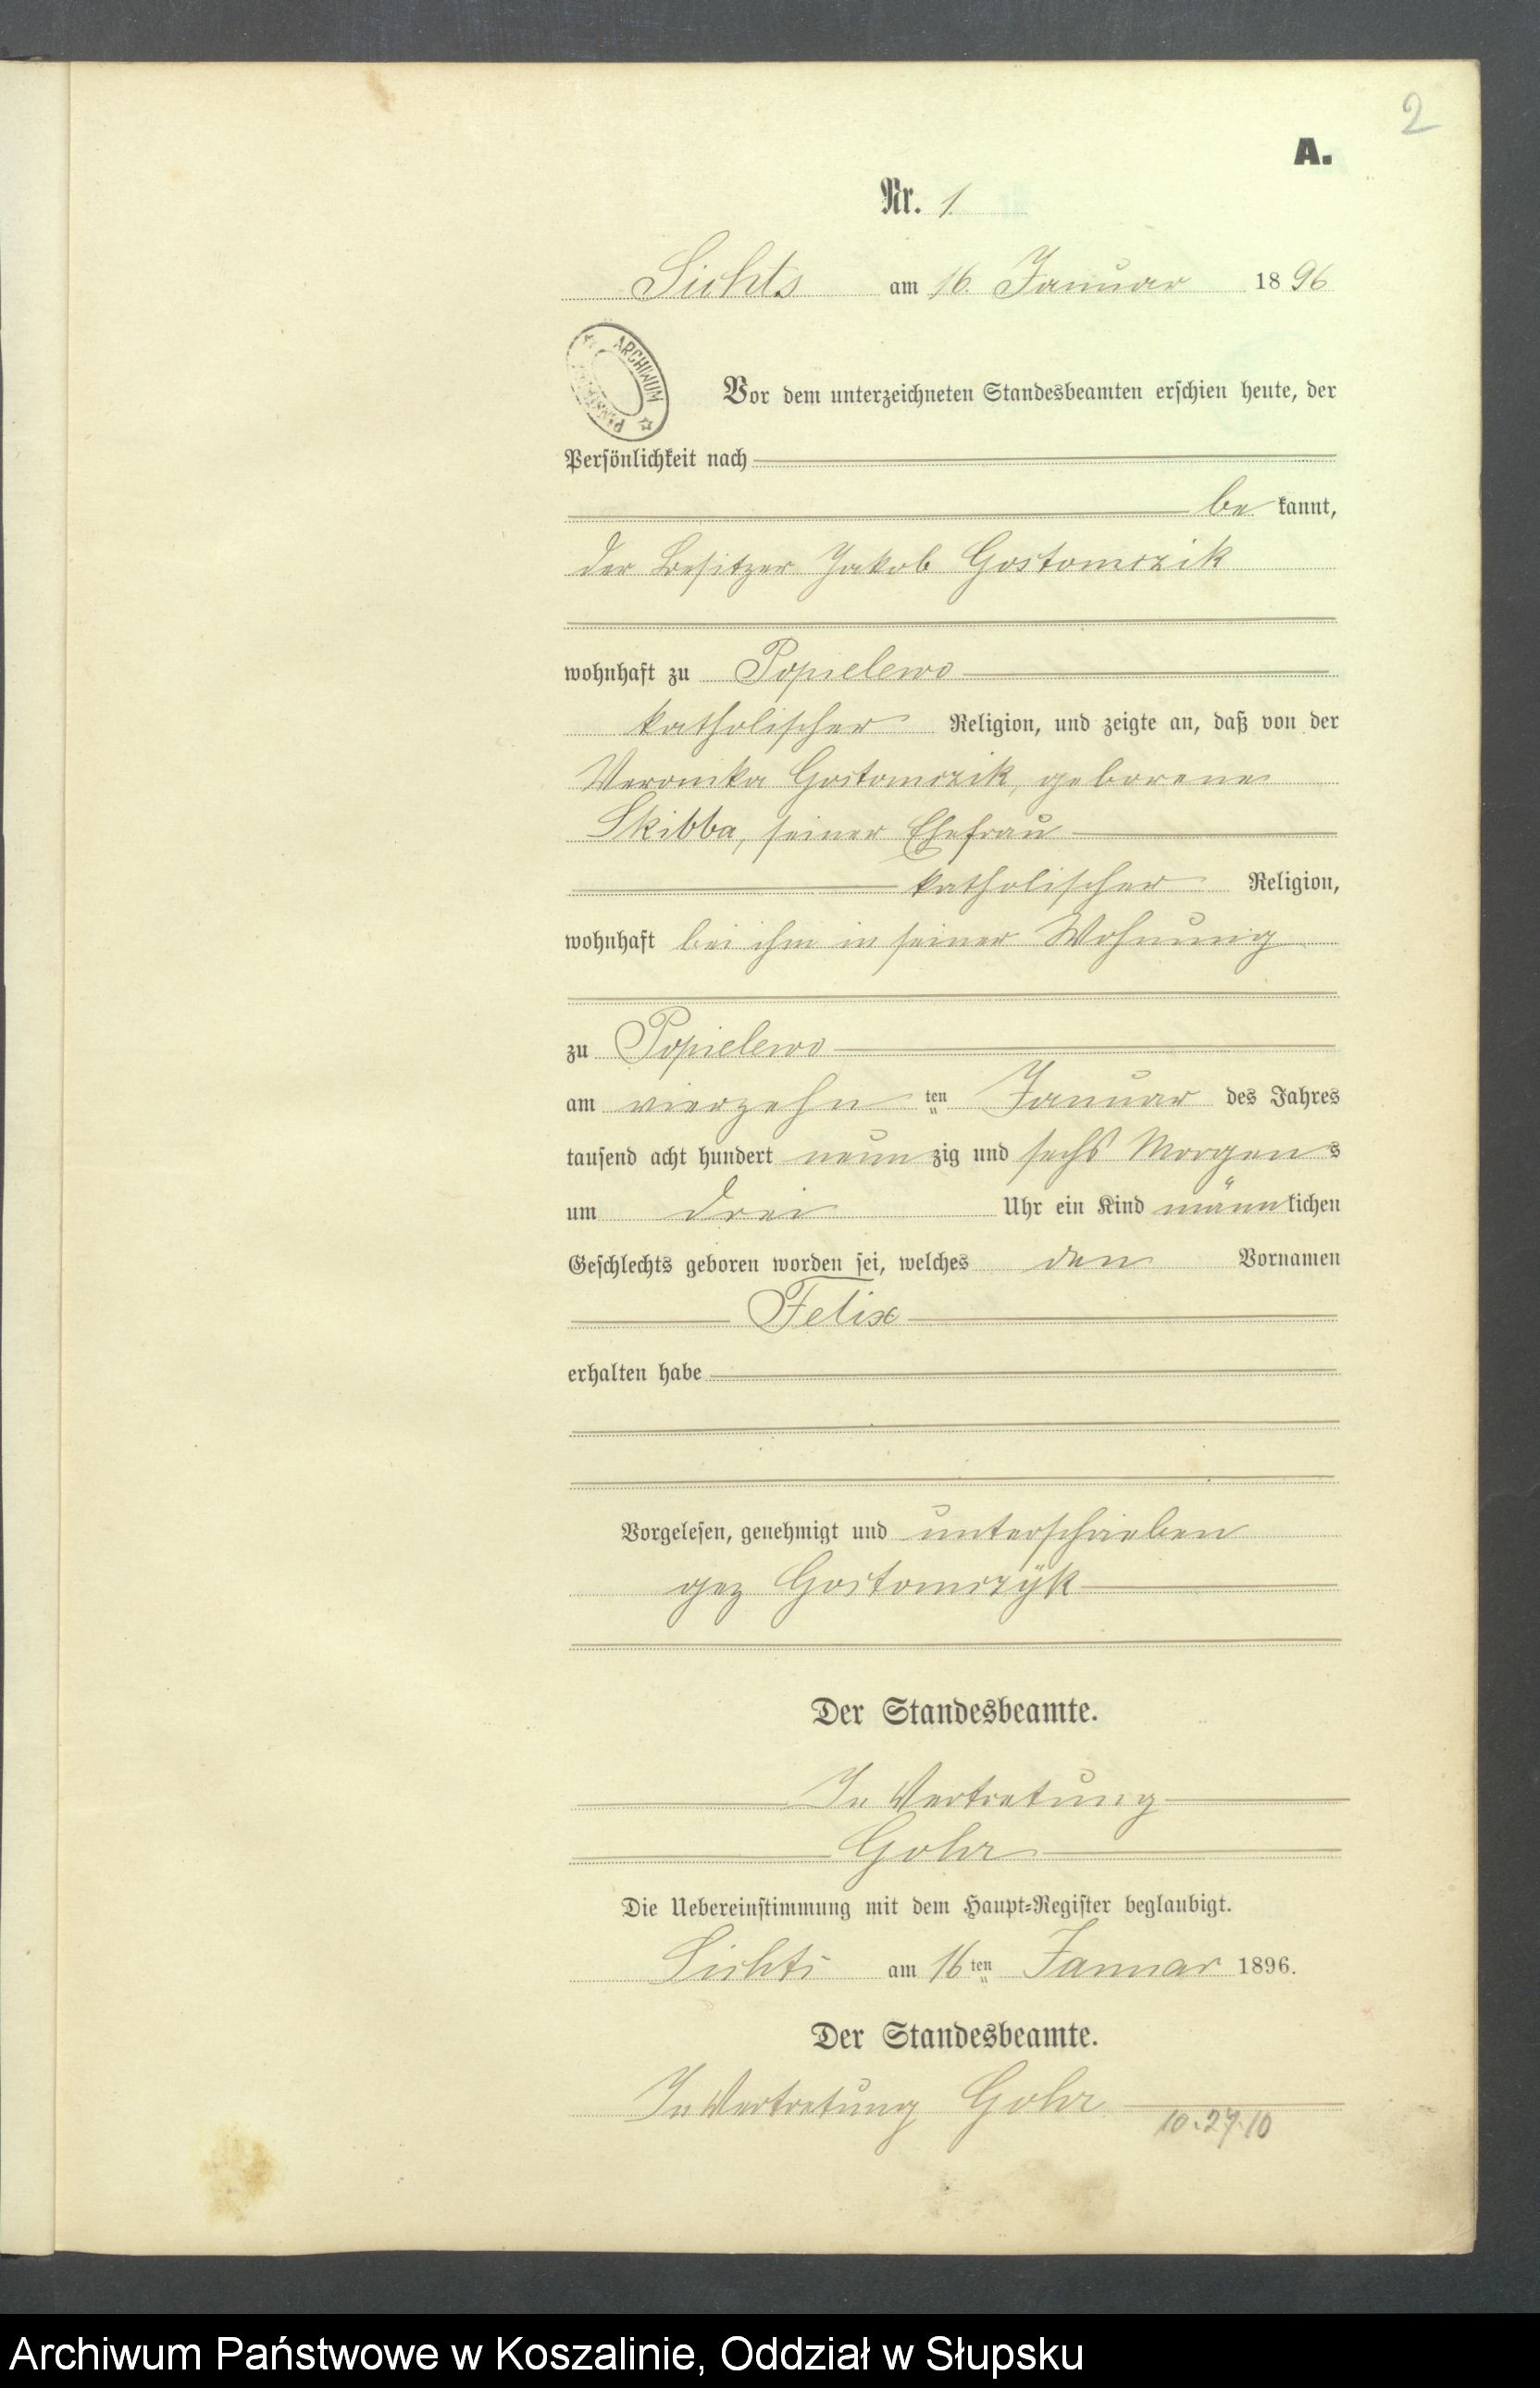 2
A.
Nr. 1.
Lichts am 16. Januar 1896
ARCHIWUM
Vor dem unterzeichneten Standesbeamten erschien heute, der
Persönlichkeit nach
be kannt,
der Besitzer Jakob Gostomczik
wohnhaft zu Popielewo
katholischer Religion, und zeigte an, daß von der
Veronika Gostomczik, geborene
Skibba, seiner Ehefrau
katholischer Religion,
wohnhaft bei ihm in seiner Wohnung
zu Popielewo
am vierzehn ten Januar des Jahres
tausend acht hundert neun zig und sechs Morgens
um drei Uhr ein Kind männlichen
Geschlechts geboren worden sei, welches den Vornamen
Felix
erhalten habe
Vorgelesen, genehmigt und unterschrieben
gez Gostomczÿk
Der Standesbeamte.
In Vertretung
Gohr
Die Uebereinstimmung mit dem Haupt-Register beglaubigt.
Lichts am 16ten Januar 1896.
Der Standesbeamte.
In Vertretung Gohr
10.27.10
Archiwum Państwowe w Koszalinie, Oddział w Słupsku